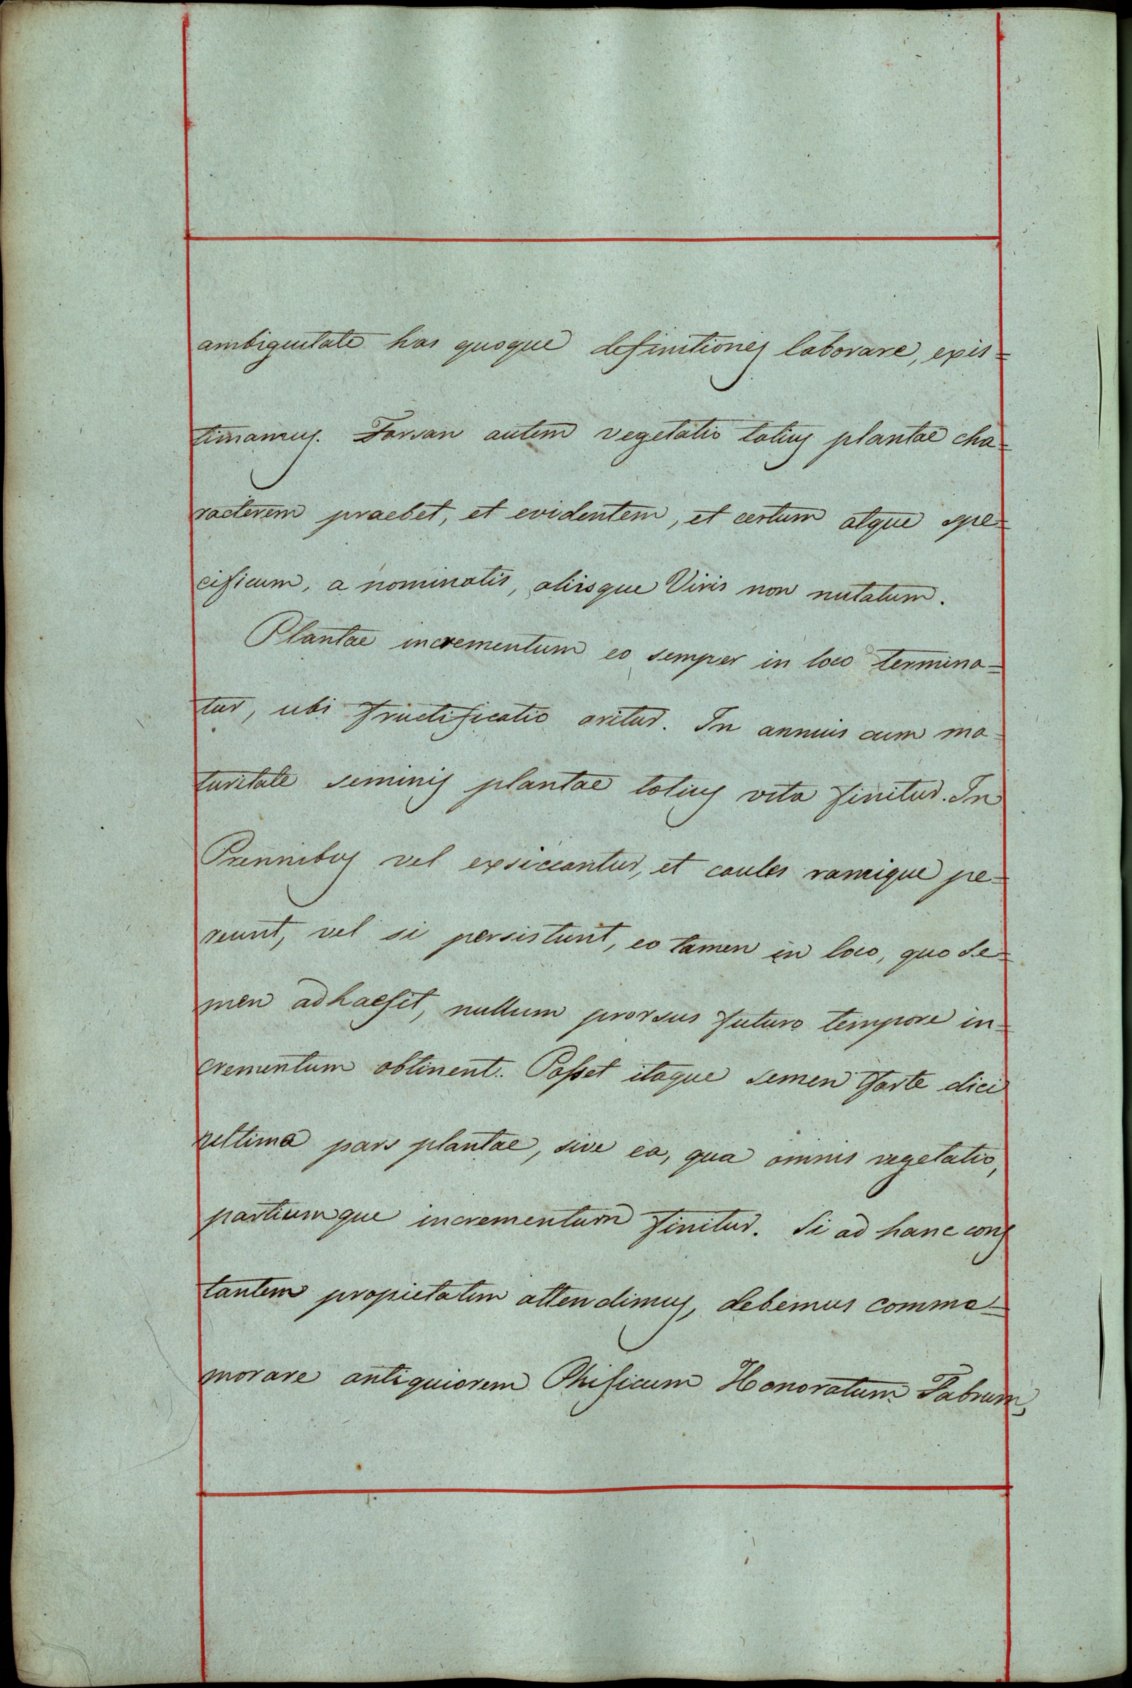 ambiguitate has quoque definitiones laborare, exis=
timamus. Forsan autem vegetatio totius plantae cha=
racterem praebet, et evidentem, et certum atque spe=
cificum, a nominatis, aliisque Viris non nutatum.
Plantae incrementum eo semper in loco termina=
tur, ubi fructificatio oritur. In annuis cum ma=
turitate seminis plantae totius vita finitur. In
Prennibus vel exsiccantur, et caules ramique pe=
reunt, vel si persistunt, eo tamen in loco, quo se=
men adhaesit, nullum prorsus futuro tempore in=
crementum obtinent. Posset itaque semen forte dici
ultima pars plantae, sive ea, qua omnis vegetatio,
partiumque incrementum finitur. Si ad hanc cons
tantem propietatem attendimus, debemus comme=
morare antiquiorem Phisicum Honoratum Fabrum,